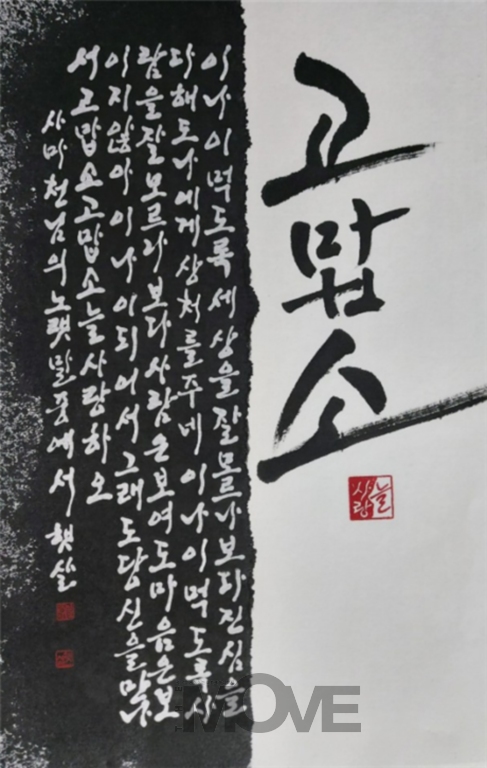 고맙소
늘사랑
이나이먹도록세상을잘모르나보다진심을
다해도나에게상처를주네이나이먹도록사
람을잘모르나보다사람은보여도마음은보
이지않아이나이되어서그래도당신을만나
서고맙소고맙소늘사랑하오
사마천님의노랫말중에서 햇살
THE MOVE